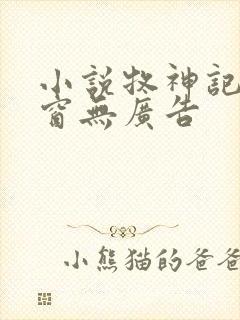 小説牧神記
窗無廣告
小熊猫的爸爸